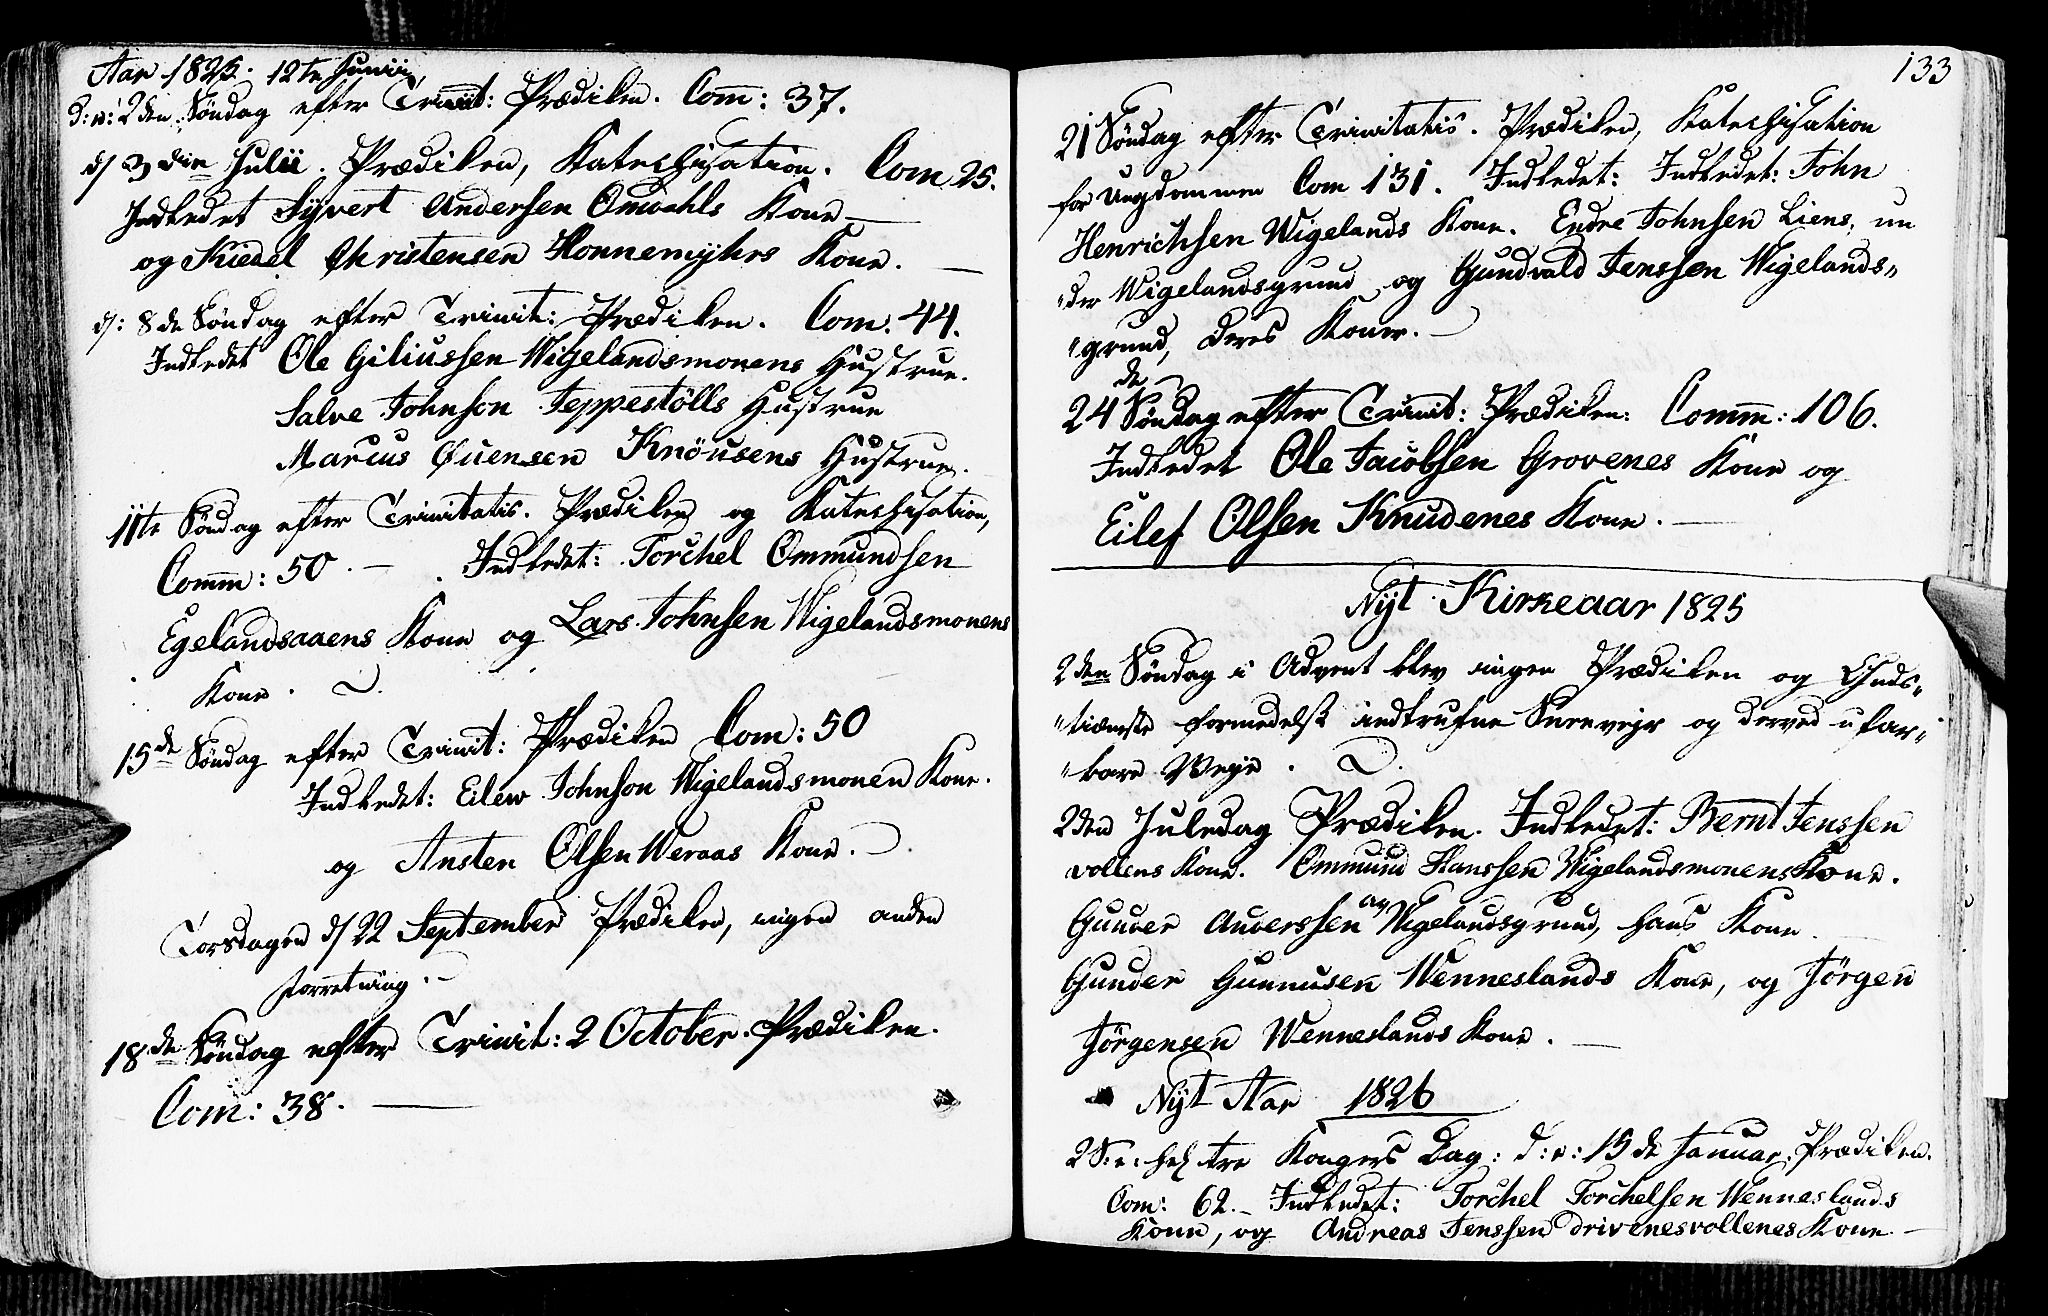 Aar 1825. 12te Junii,
d: v: 2den Søndag efter Trinit: Prædiken. Com: 37.
d/ 3die Julii. Prædiken, Katechisation. Com 25.
Indledet Syvert Andersen Omdahls Kone
og Kiedel Christensen Honnemyhrs Kone.
d: 8de Søndag efter Trinit: Prædiken. Com. 44.
Indledet Ole Giliussen Wigelandsmonens Hustrue.
Salve Johnson Jeppestölls Hustrue
Marcus Øuensen Knöusens Hustrue.
11te Søndag efter Trinitatis. Prædiken og Katechisation,
Comm: 50. Indledet: Torchel Ommundsen
Egelandsaaens Kone og Lars Johnsen Wigelandsmonens
Kone.
15de Søndag efter Trinit: Prædiken Com: 50
Indledet: Eilew Johnson Wigelandsmonen Kone.
og Ansten Olsen Weraas Kone.
Torsdagen d/ 22 September Prædiken, ingen anden
forretning.
18de Søndag efter Trinit: 2 October. Prædiken.
Com: 38.
133
21 Søndag efter Trinitatis. Prædiken, Katechisation
for Ungdommen Com 131. Indledet: Indledet: John
Henrichsen Wigelands Kone. Endre Johnsen Liens, un
"der Wigelandsgrund og Gundvald Jenssen Wigelands"
"grund, deres Koner.
24de Søndag efter Trinit: Prædiken: Comm: 106.
Indledet Ole Jacobsen Grovenes Kone og
Eilef Olsen Knudenes Kone.
Nyt Kirkeaar 1825
2den Søndag i Advent blev ingen Prædiken og Guds"
"tieneste formedelst indtrufne Sneeveir og derved ufar"
"bare Veye.
2den Juledag Prædiken. Indledet: Bernt Jenssen
vollens Kone. Ommund Hanssen Wigelandsmonens Kone.
Gunder Anderssen ag Wigelandsgrund, hans Kone
Gunder Gunnusen Wenneslands Kone, og Jörgen
Jörgensen Wenneslands Kone.
Nyt Aar 1826
2 S: e: hel tre Kongers Dag: d: v: 15de Januar. Prædiken.
Com: 62. Indledet: Torchel Torchelsen Wenneslands
Kone, og Andreas Jenssen drivenesvollenes Kone